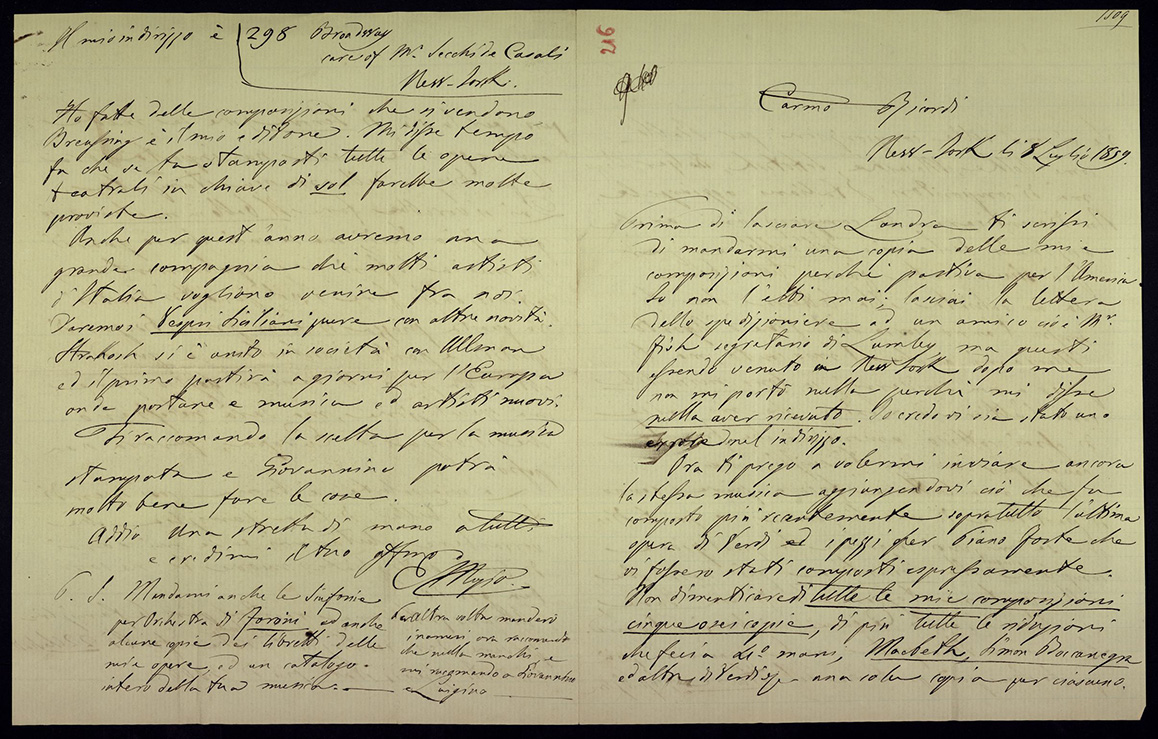 1859
216
Carmo Ricordi
New-York li 8 Luglio 1859.
Prima di lasciare Londra ti scrissi
di mandarmi una copia delle mie
composizioni perchè partiva per l'America.
Io non l'ebbi mai; lasciai la lettera
dello spedizioniere ad un amico cioè Mr.
Fish segretario di Lumley ma questi
essendo venuto in New York dopo me
non mi portò nulla perchè mi disse
nulla aver ricevuto. Io credo vi sia stato uno
nel indirizzo.
Ora ti prego a volermi inviare ancora
la stessa musica aggiungendovi ciò che fu
composto più recentemente sopratutto l'ultima
opera di Verdi ed i pezzi per Piano forte che
vi fossero stati composti espressamente.
Non dimenticare di tutte le mie composizioni
cinque o sei copie, di più tutte le riduzioni
che feci a 4o mani, Macbeth, Simon Bocanegra
ed altre di Verdi una sola copia per ciascuno.
Il mio indirizzo è 298 Broadway
care of Mr. Secchi de Casali
New-York.
Ho fatte delle composizioni che si vendono
Breusing è il mio editore. Mi disse tempo
fa che se tu stampasti tutte le opere
teatrali in chiave di sol farebbe molte
proviste.
Anche per quest'anno avremo una
grande compagnia chè molti artisti
d'Italia vogliono venire fra noi.
Daremo i Vespri Siciliani pure con altre novità.
Strakosh si è unito in società con Ullman
ed il primo partirà a giorni per l'Europa
onde portare e musica ed artisti nuovi.
Ti raccomando la scelta per la musica
stampata e Giovannino potrà
molto bene fare le cose.
Addio una stretta di mano a tutti
e credimi il tuo affmo
EMuzio.
P. S. Mandami anche le Sinfonie
per Orchestra di Foroni, ed anche
alcune copie dei libretti delle
mie opere, ed un catalogo
intero della tua musica.
Per l'altra volta manderò
inanzi, ora raccomando
che nulla manchi, e
mi racomando a Giovannino
e Luigino